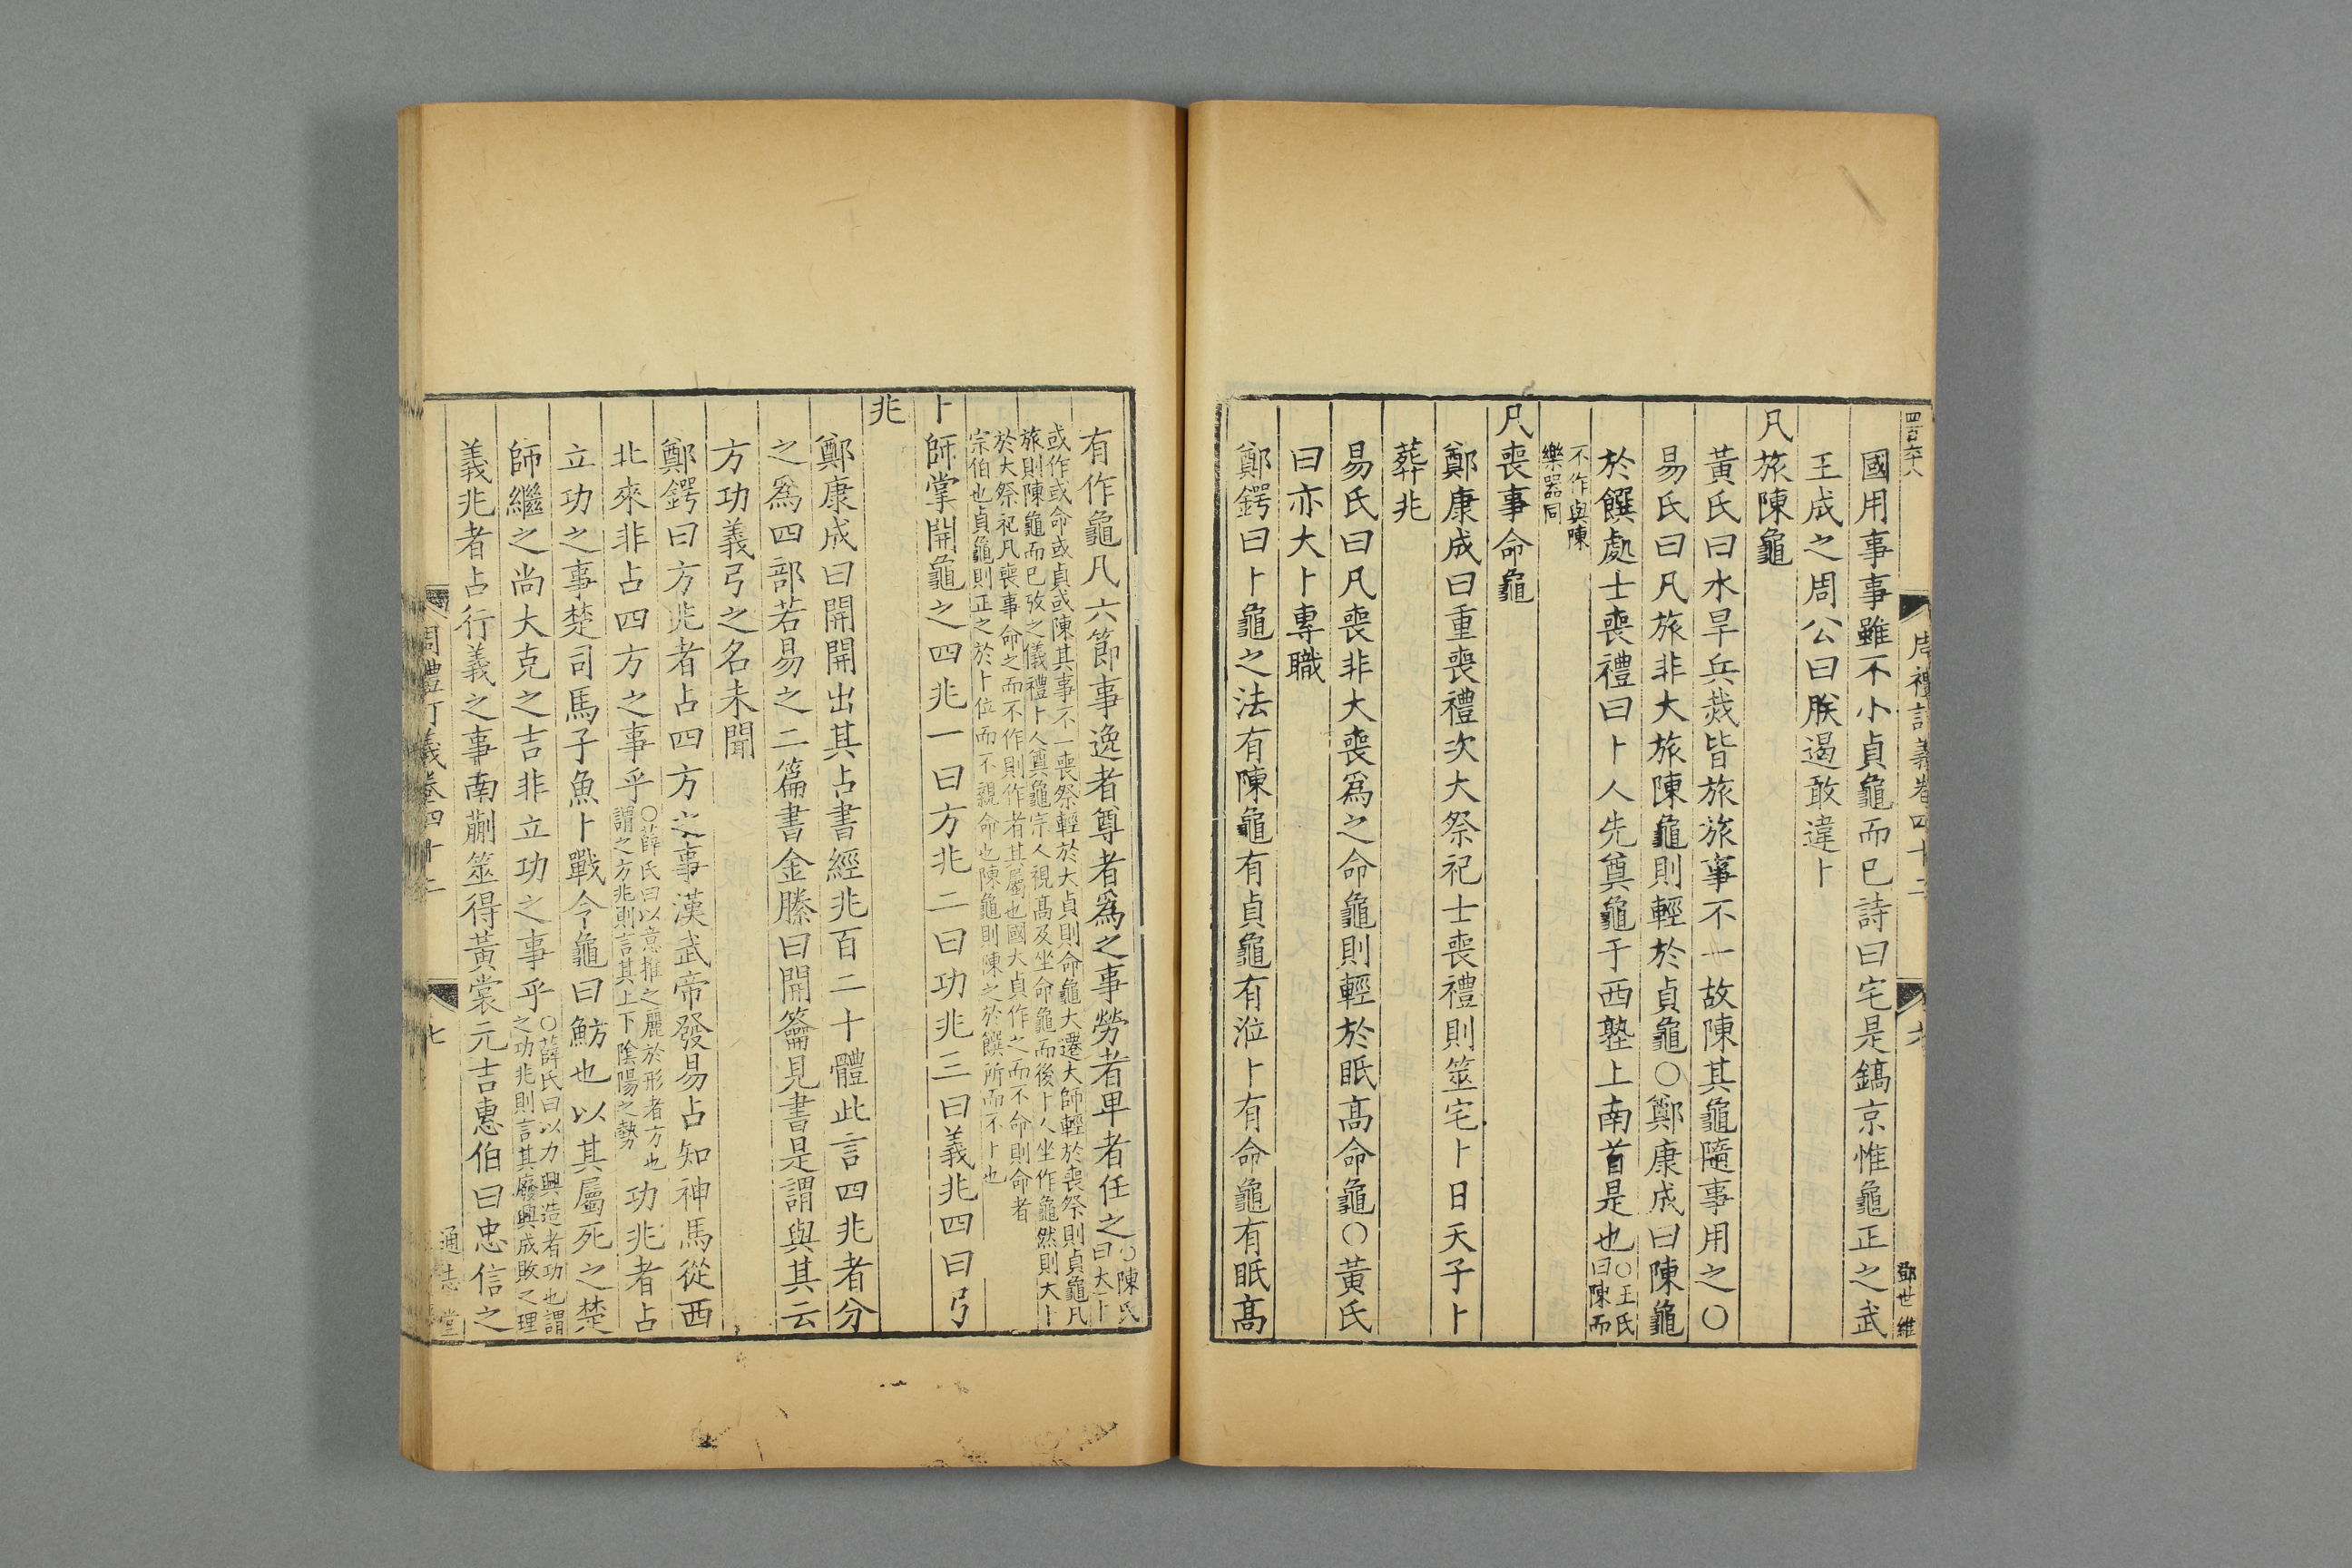 四百六十八
周禮訂義卷四十二
六
鄧世維
國用事事雖不小貞龜而已詩曰宅是鎬京惟龜正之武
王成之周公曰朕遏敢違卜
凡旅陳龜
黃氏曰水旱兵烖皆旅旅事不一故陳其龜隨事用之〇
易氏曰凡旅非大旅陳龜則輕於貞龜〇鄭康成曰陳龜
於饌處士喪禮曰卜人先奠龜于西塾上南首是也〇王氏
曰陳而
不作與陳
樂器同
凡喪事命龜
鄭康成曰重喪禮次大祭祀士喪禮則筮宅卜日天子卜
葬兆
易氏曰凡喪非大喪爲之命龜則輕於眂髙命龜〇黃氏
曰亦大卜專職
鄭鍔曰卜龜之法有陳龜有貞龜有涖卜有命龜有眂髙
有作龜凡六節事逸者尊者爲之事勞者卑者任之〇陳氏
曰大卜
或作或命或貞或陳其事不一喪祭輕於大貞則命龜大遷大師輕於喪祭則貞龜凡
旅則陳龜而已攷之儀禮卜人奠龜宗人視髙及坐命龜而後卜人坐作龜然則大卜
於大祭祀凡喪事命之而不作則作者其屬也國大貞作之而不命則命者
宗伯也貞龜則正之於卜位而不親命也陳龜則陳之於饌所而不卜也
卜師掌開龜之四兆一曰方兆二曰功兆三曰義兆四曰弓
兆
鄭康成曰開開出其占書經兆百二十體此言四兆者分
之爲四部若易之二篇書金縢曰開籥見書是謂與其云
方功義弓之名未聞
鄭鍔曰方兆者占四方之事漢武帝發易占知神馬從西
北來非占四方之事乎〇薛氏曰以意推之麗於形者方也
謂之方兆則言其上下陰陽之勢
功兆者占
立功之事楚司馬子魚卜戰令龜曰魴也以其屬死之楚
師繼之尚大克之吉非立功之事乎〇薛氏曰以力興造者功也謂
之功兆則言其廢興成敗之理
義兆者占行義之事南蒯筮得黃裳元吉惠伯曰忠信之
周禮訂義卷四十二
七
通志堂